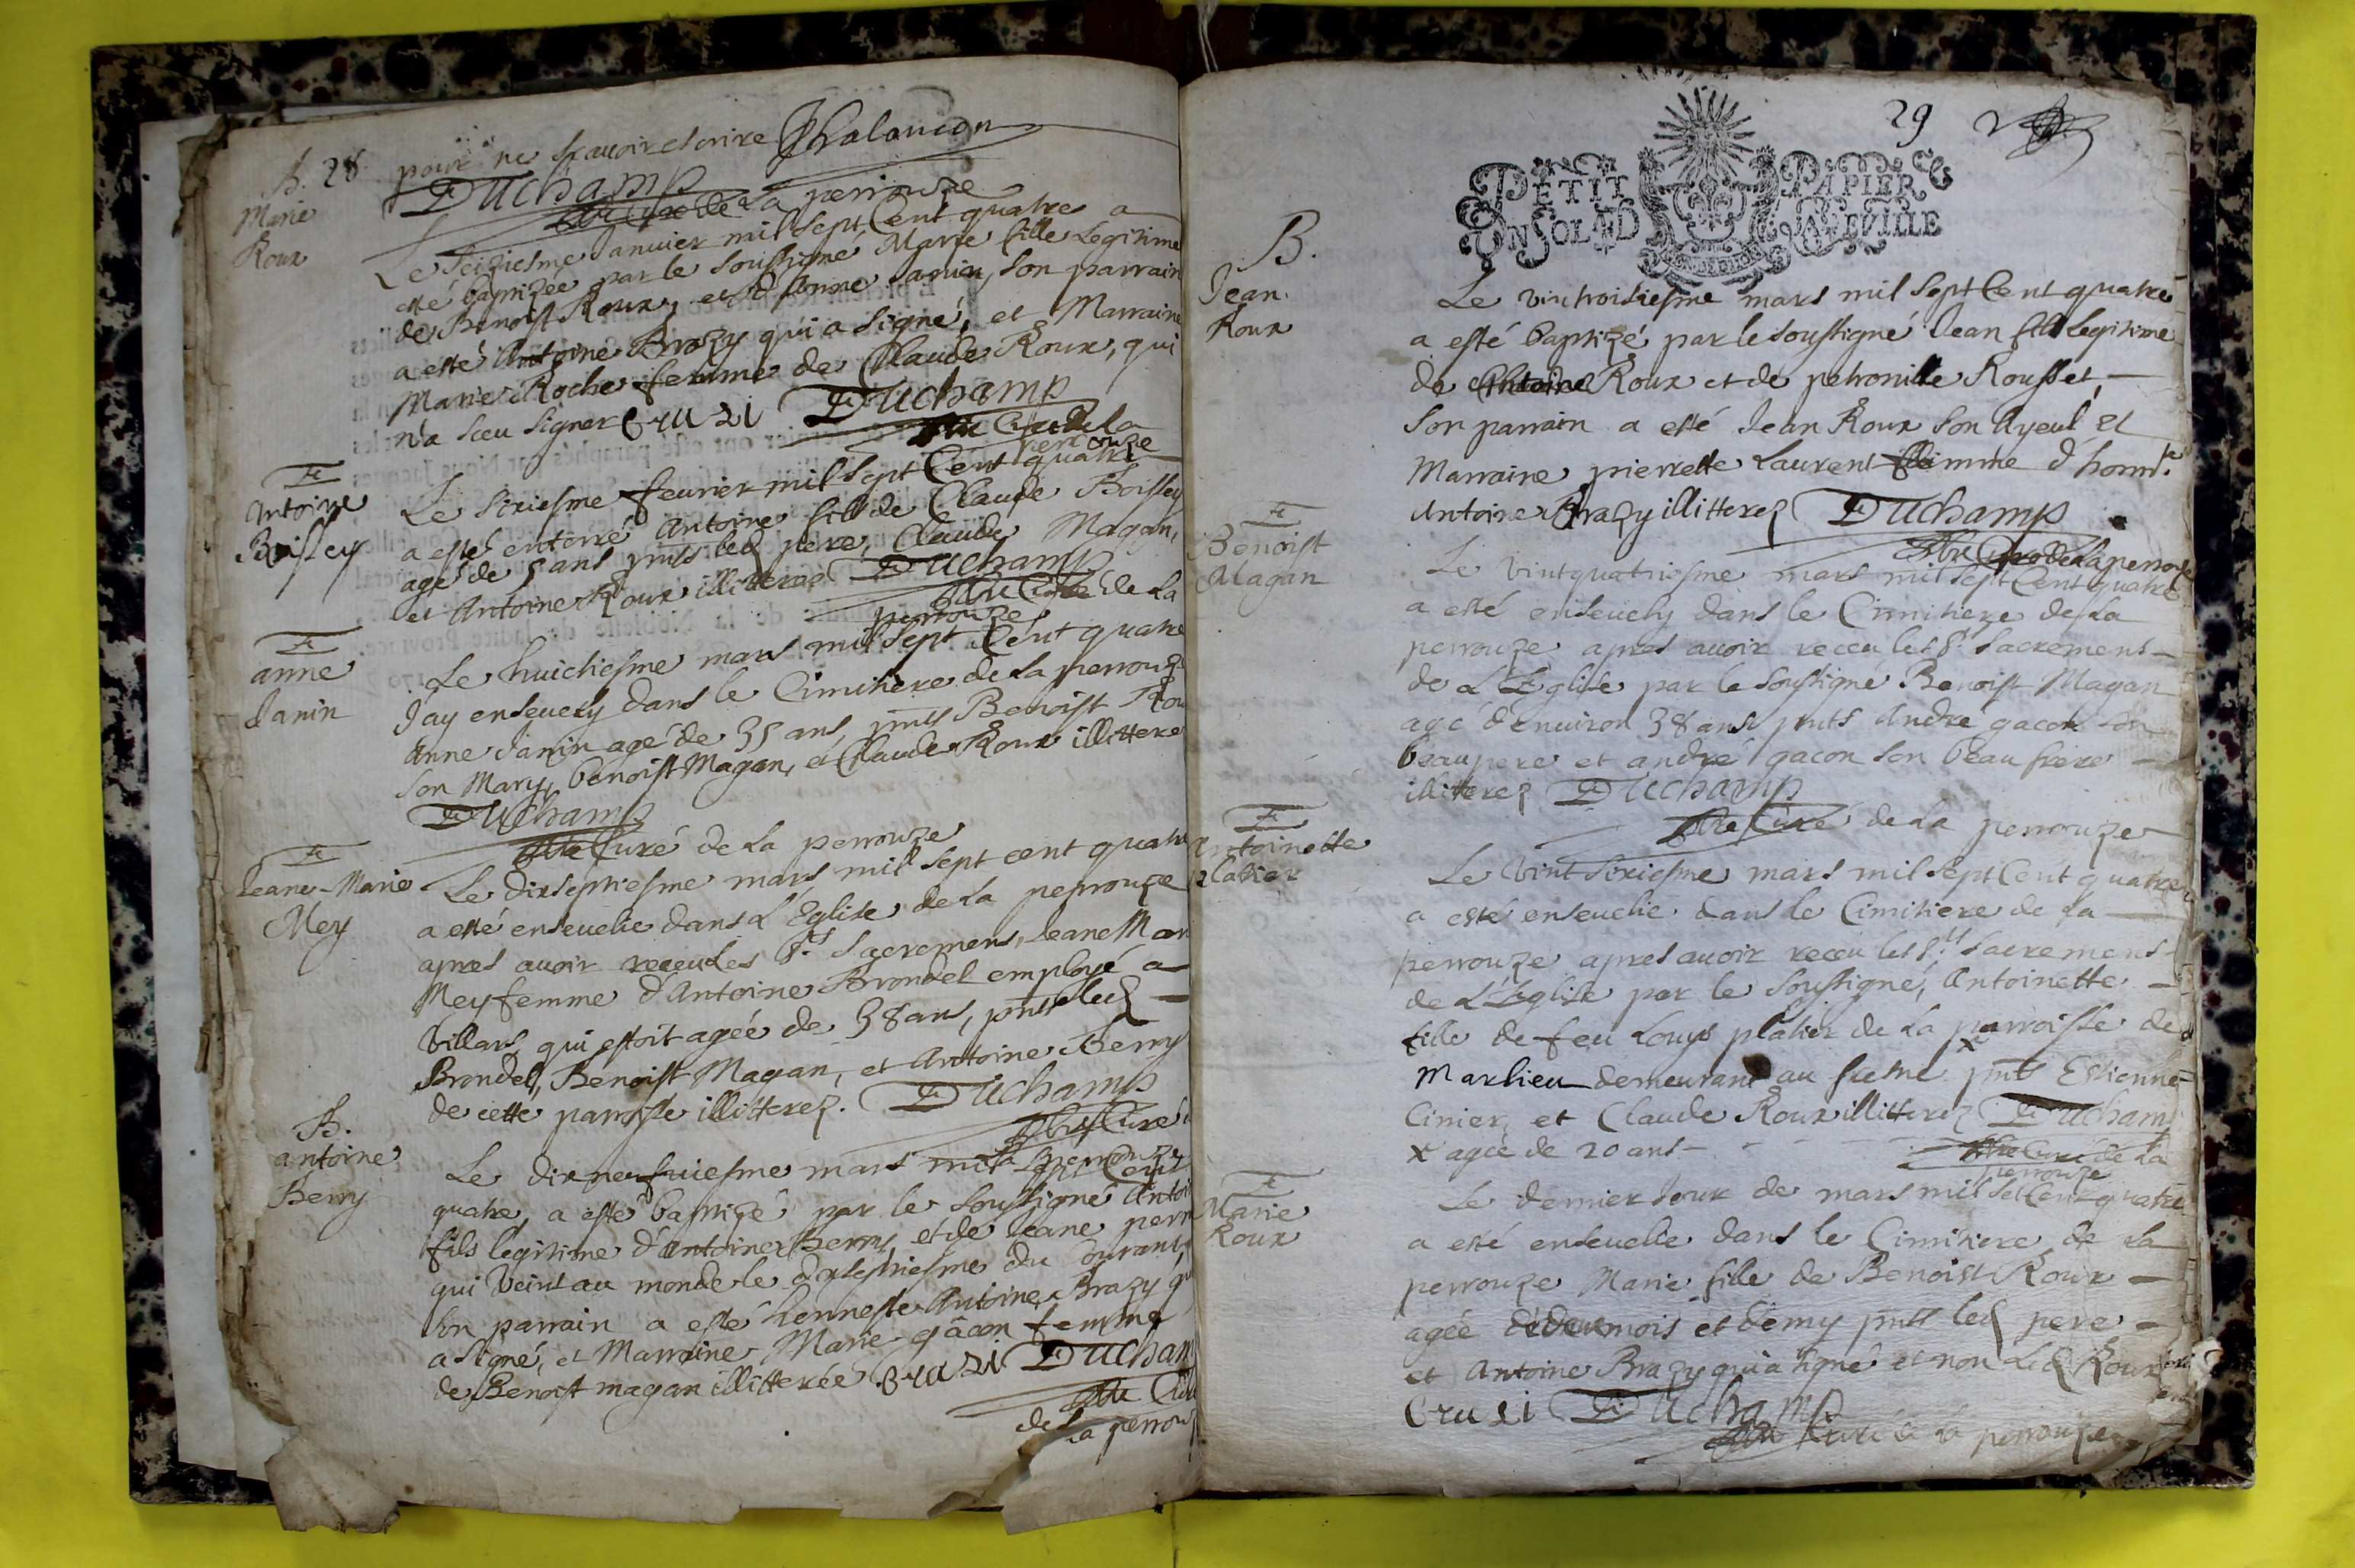 B. 28
Marie
Roux
pour ne scavoir escrire Chalancon
Duchamp
ptre Curé de La perrouze
Le seiziesme Januier mil sept Cent quatre a
esté baptizée par le soussigné Marie fille Legitime
de Benoist Roux, et d'Anne Janin, son parrain
a esté Antoine Brazy qui a signé, et Marraine
Marie Roche femme de Claude Roux, qui
n'a sceu signer Brazi Duchamp
ptre Curé de La
perrouze
F
Antoine
Boissey
Le sixiesme feurier mil sept Cent quatre
a esté enterré Antoine fils de Claude Boissey
agé de 5 ans pnts led pere, Claude Magan,
et Antoine Roux illitterez Duchamp
ptre Curé de La
perrouze
F
anne
Janin
Le huictiesme mars mil sept Cent quatre
J'ay enseuely dans le Cimitiere de La perrouze
Anne Janin agé de 35 ans, pnts Benoist Rou
son Mary, benoist Magan, et Claude Roux illittere
Duchamp
ptre Curé de La perrouze
F
Jeane-Marie
Mey
Le dixseptiesme mars mil sept cent quatre
a esté enseuelie dans L'Eglise de La perrouze
apres auoir receu les Sts Sacremens, Jeane Mar
Mey femme d'Antoine Brondel employé a
Villars, qui estoit agée de 38 ans, pnts led
Brondel, Benoist Magan, et Antoine Berry
de cette parroisse illitterez. Duchamp
ptre Curé
de La perrouze
B.
antoine
Berry
Le dixneufuiesme mars mil sept Cent
quatre a esté baptizé par le soussigné Antoi
fils legitime d'antoine Berry, et de Jeane perr
qui Veint au monde le dixseptiesme du Courant,
son parrain a esté honneste Antoine Brazy q
a signé, et Marraine Marie gâcon femme
de Benoist magan illitterée Brazi Ducham
ptre Curé
de La perrouz
29 2
PETIT PAPIER
UN SOL LA FEVILLE
B.
Jean
Roux
Le vintroisiesme mars mil sept Cent quatre
a esté baptizé par le soussigné Jean fils legitime
de Antoine Roux et de petronille Rousset,
son parrain a esté Jean Roux son Ayeul et
Marraine pierrette Laurent femme d'honn.te
Antoine Brazy illitterez Duchamp
ptre Curé de La perrouze
F
Benoist
Magan
Le vintquatriesme mars mil sept Cent quatre
a esté enseuely dans le Cimitiere de La
perrouze apres auoir receu les Sts Sacremens
de L'Eglise par le soussigné Benoist Magan
agé d'Enuiron 38 ans pnts André gacon son
beaupere et andré gacon son beau frere
illitterez Duchamp
ptre Curé de La perrouze
F
Antoinette
platier
Le Vint sixiesme mars mil sept Cent quatre
a esté enseuelie dans le Cimitiere de La
perrouze apres auoir receu les Sts sacremens
de L'Eglise par le soussigné, Antoinette
fille de feu Louys platier de La parroisse de
Marlieu demeurant au fresne x pnts Estienne
Cinier, et Claude Roux illitterez Ducham
x agée de 20 ans
ptre Curé de La
perrouze
F
Marie
Roux
Le dernier Jour de mars mil set Cent quatre
a esté enseuelie dans le Cimitiere de La
perrouze Marie fille de Benoist Roux
agée de deux mois et demy pnts led pere
et Antoine Brazy qui a signé et non Led Roux
Brazi Duchamp
ptre Curé de La perrouze